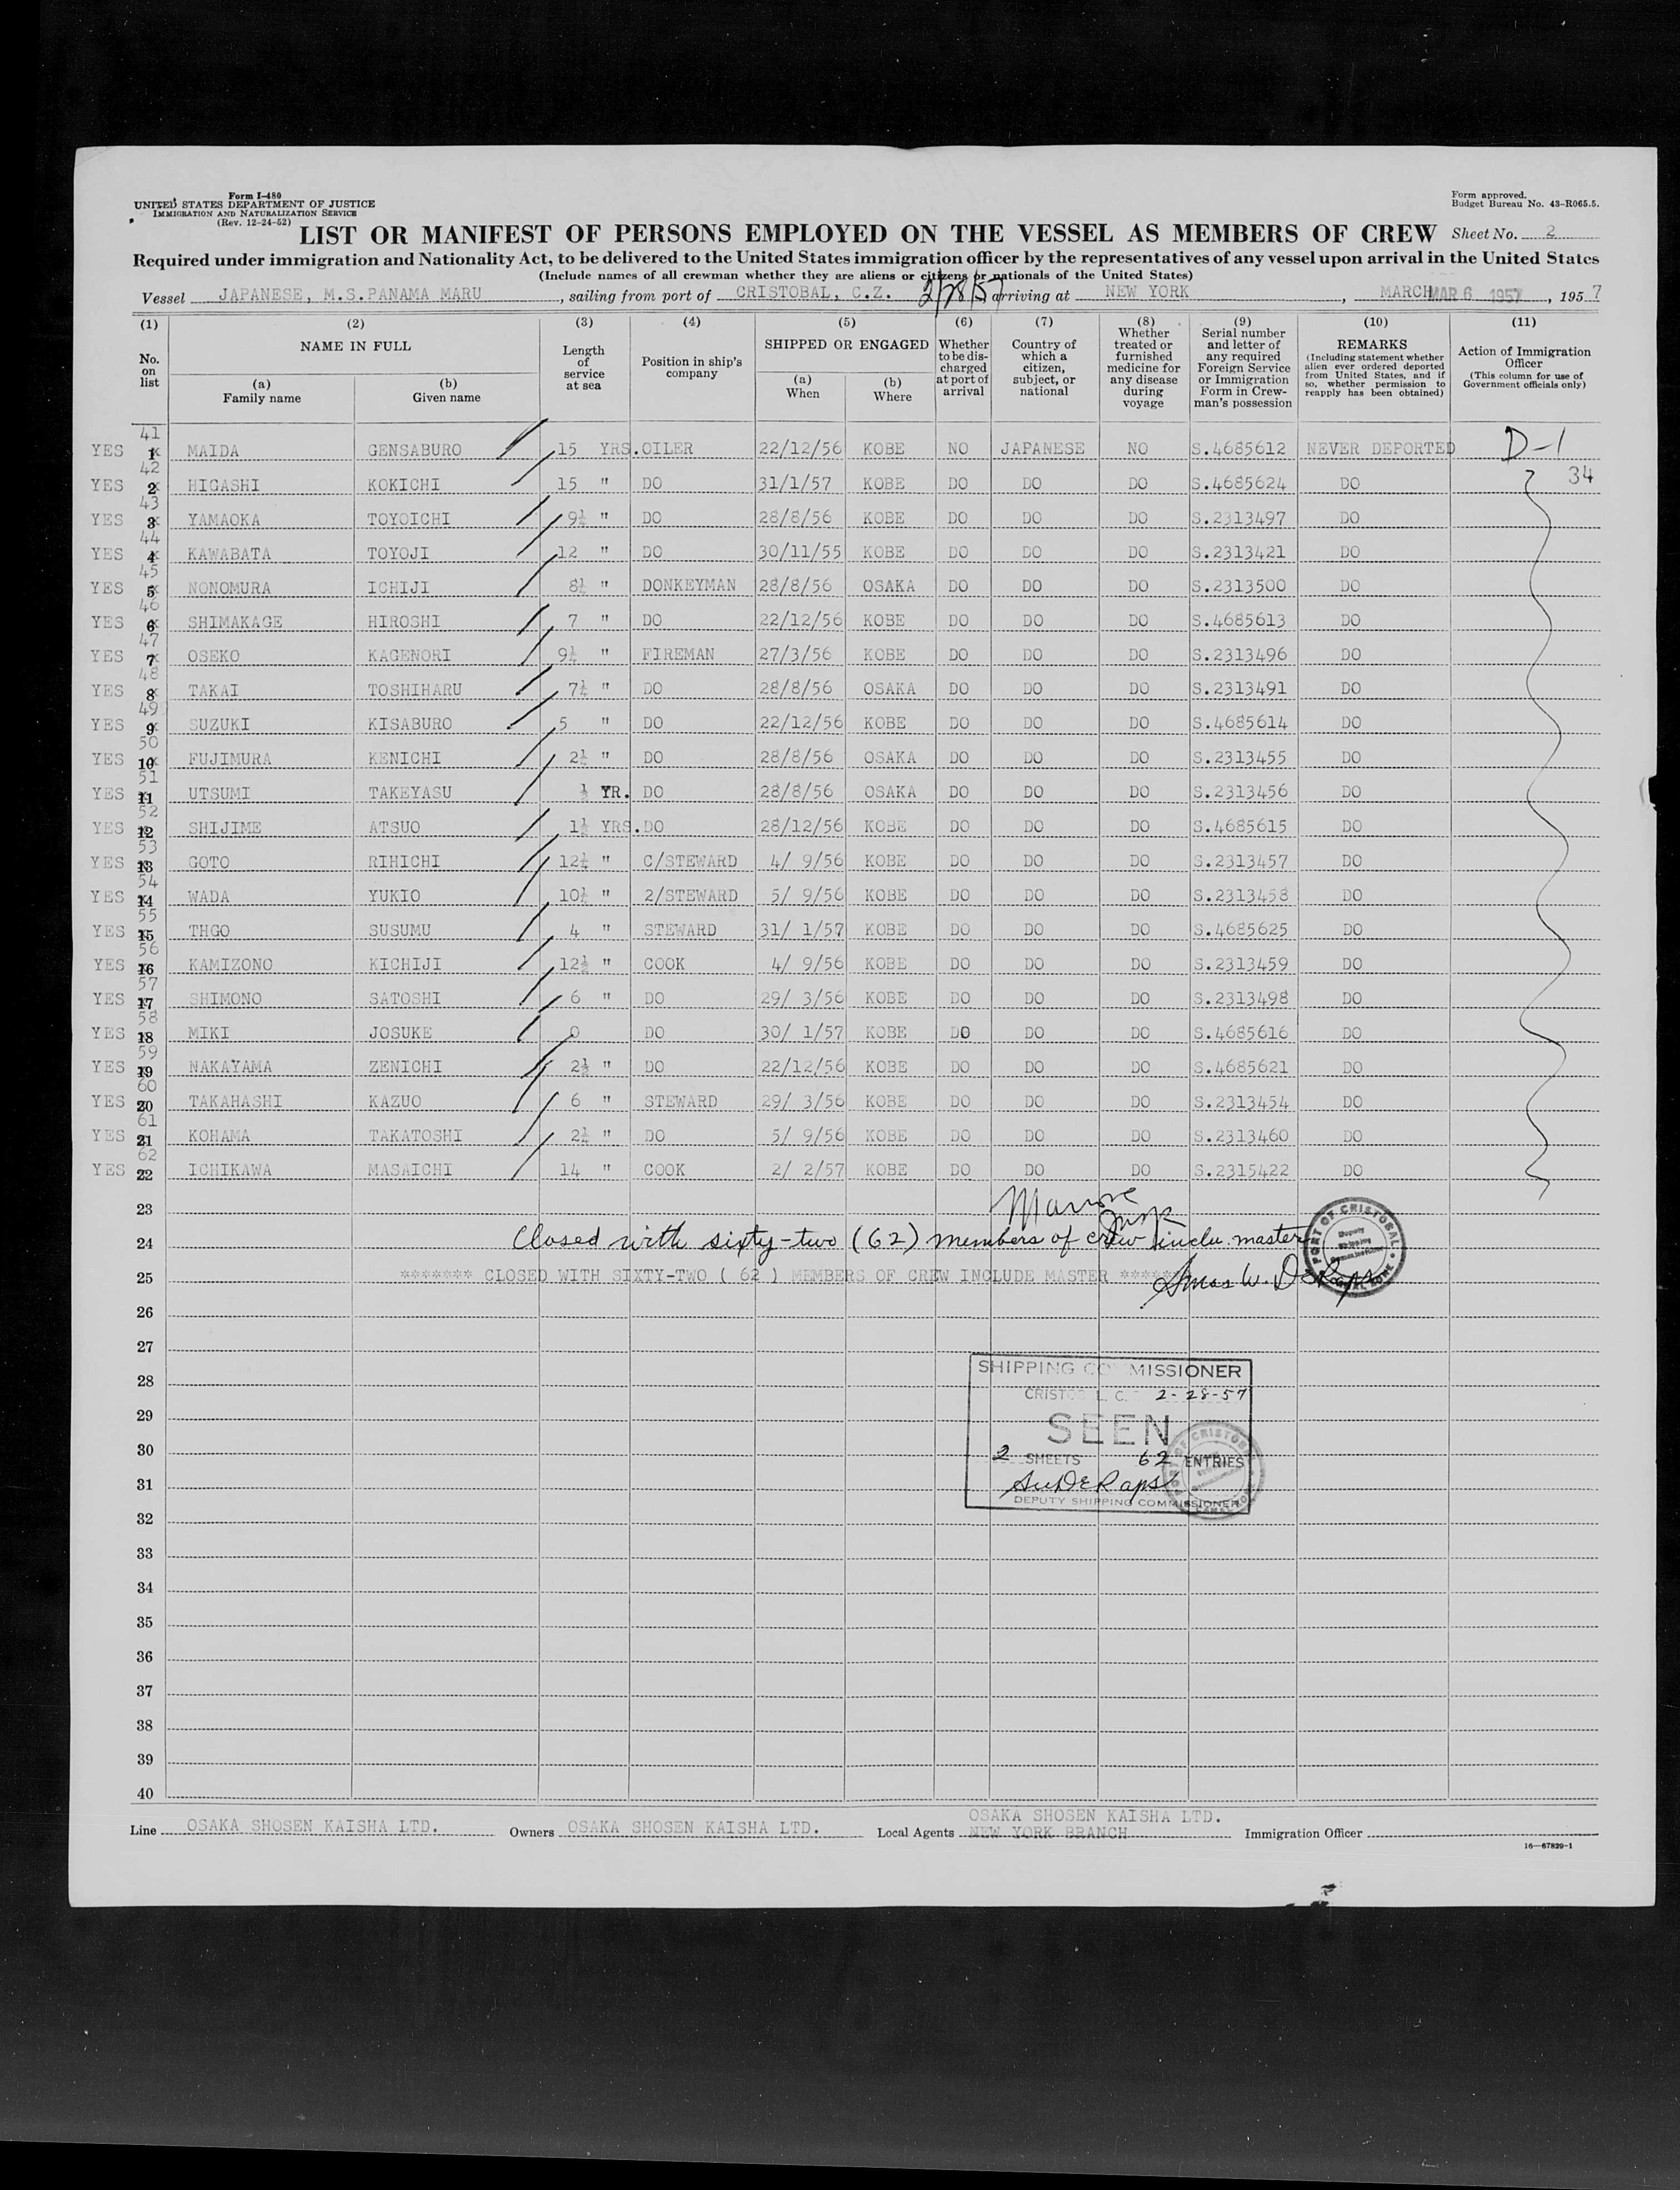 Form I-480
UNITED STATES DEPARTMENT OF JUSTICE
IMMIGRATION AND NATURALIZATION SERVICE
(Rev. 12-24-52)
Form approved.
Budget Bureau No. 43-R065.5.
LIST OR MANIFEST OF PERSONS EMPLOYED ON THE VESSEL AS MEMBERS OF CREW Sheet No. 2
Required under immigration and Nationality Act, to be delivered to the United States immigration officer by the representatives of any vessel upon arrival in the United States
(Include names of all crewman whether they are aliens or citizens or nationals of the United States)
Vessel JAPANESE, M.S.PANAMA MARU, sailing from port of CRISTOBAL, C.Z. 2/28/57 arriving at NEW YORK, MARCH MAR 6 1957, 1957
(1) No. on list
(2) NAME IN FULL
(a) Family name
(b) Given name
(3) Length of service at sea
(4) Position in ship's company
(5) SHIPPED OR ENGAGED
(a) When
(b) Where
(6) Whether to be discharged at port of arrival
(7) Country of which a citizen, subject, or national
(8) Whether treated or furnished medicine for any disease during voyage
(9) Serial number and letter of any required Foreign Service or Immigration Form in Crewman's possession
(10) REMARKS (Including statement whether alien ever ordered deported from United States, and if so, whether permission to reapply has been obtained)
(11) Action of Immigration Officer (This column for use of Government officials only)
YES 41 1 MAIDA GENSABURO 15 YRS. OILER 22/12/56 KOBE NO JAPANESE NO S.4685612 NEVER DEPORTED D-1
YES 42 2 HIGASHI KOKICHI 15 " DO 31/1/57 KOBE DO DO DO S.4685624 DO 34
YES 43 3 YAMAOKA TOYOICHI 9½ " DO 28/8/56 KOBE DO DO DO S.2313497 DO
YES 44 4 KAWABATA TOYOJI 12 " DO 30/11/55 KOBE DO DO DO S.2313421 DO
YES 45 5 NONOMURA ICHIJI 8½ " DONKEYMAN 28/8/56 OSAKA DO DO DO S.2313500 DO
YES 46 6 SHIMAKAGE HIROSHI 7 " DO 22/12/56 KOBE DO DO DO S.4685613 DO
YES 47 7 OSEKO KAGENORI 9½ " FIREMAN 27/3/56 KOBE DO DO DO S.2313496 DO
YES 48 8 TAKAI TOSHIHARU 7½ " DO 28/8/56 OSAKA DO DO DO S.2313491 DO
YES 49 9 SUZUKI KISABURO 5 " DO 22/12/56 KOBE DO DO DO S.4685614 DO
YES 50 10 FUJIMURA KENICHI 2½ " DO 28/8/56 OSAKA DO DO DO S.2313455 DO
YES 51 11 UTSUMI TAKEYASU ½ YR. DO 28/8/56 OSAKA DO DO DO S.2313456 DO
YES 52 12 SHIJIME ATSUO 1½ YRS. DO 28/12/56 KOBE DO DO DO S.4685615 DO
YES 53 13 GOTO RIHICHI 12½ " C/STEWARD 4/ 9/56 KOBE DO DO DO S.2313457 DO
YES 54 14 WADA YUKIO 10½ " 2/STEWARD 5/ 9/56 KOBE DO DO DO S.2313458 DO
YES 55 15 THGO SUSUMU 4 " STEWARD 31/ 1/57 KOBE DO DO DO S.4685625 DO
YES 56 16 KAMIZONO KICHIJI 12½ " COOK 4/ 9/56 KOBE DO DO DO S.2313459 DO
YES 57 17 SHIMONO SATOSHI 6 " DO 29/ 3/56 KOBE DO DO DO S.2313498 DO
YES 58 18 MIKI JOSUKE 0 DO 30/ 1/57 KOBE DO DO DO S.4685616 DO
YES 59 19 NAKAYAMA ZENICHI 2½ " DO 22/12/56 KOBE DO DO DO S.4685621 DO
YES 60 20 TAKAHASHI KAZUO 6 " STEWARD 29/ 3/56 KOBE DO DO DO S.2313454 DO
YES 61 21 KOHAMA TAKATOSHI 2½ " DO 5/ 9/56 KOBE DO DO DO S.2313460 DO
YES 62 22 ICHIKAWA MASAICHI 14 " COOK 2/ 2/57 KOBE DO DO DO S.2315422 DO
23
24 Closed with sixty-two (62) members of crew inclu. master
PORT OF CRISTOBAL
25 ******* CLOSED WITH SIXTY-TWO ( 62 ) MEMBERS OF CREW INCLUDE MASTER *******
26
27
28
29
30
31
32
33
34
35
36
37
38
39
40
SHIPPING COMMISSIONER
CRISTOBAL, C. 2-28-57
SEEN
2 SHEETS 62 ENTRIES
DEPUTY SHIPPING COMMISSIONER
Line OSAKA SHOSEN KAISHA LTD. Owners OSAKA SHOSEN KAISHA LTD. Local Agents OSAKA SHOSEN KAISHA LTD. NEW YORK BRANCH Immigration Officer
16—67829-1